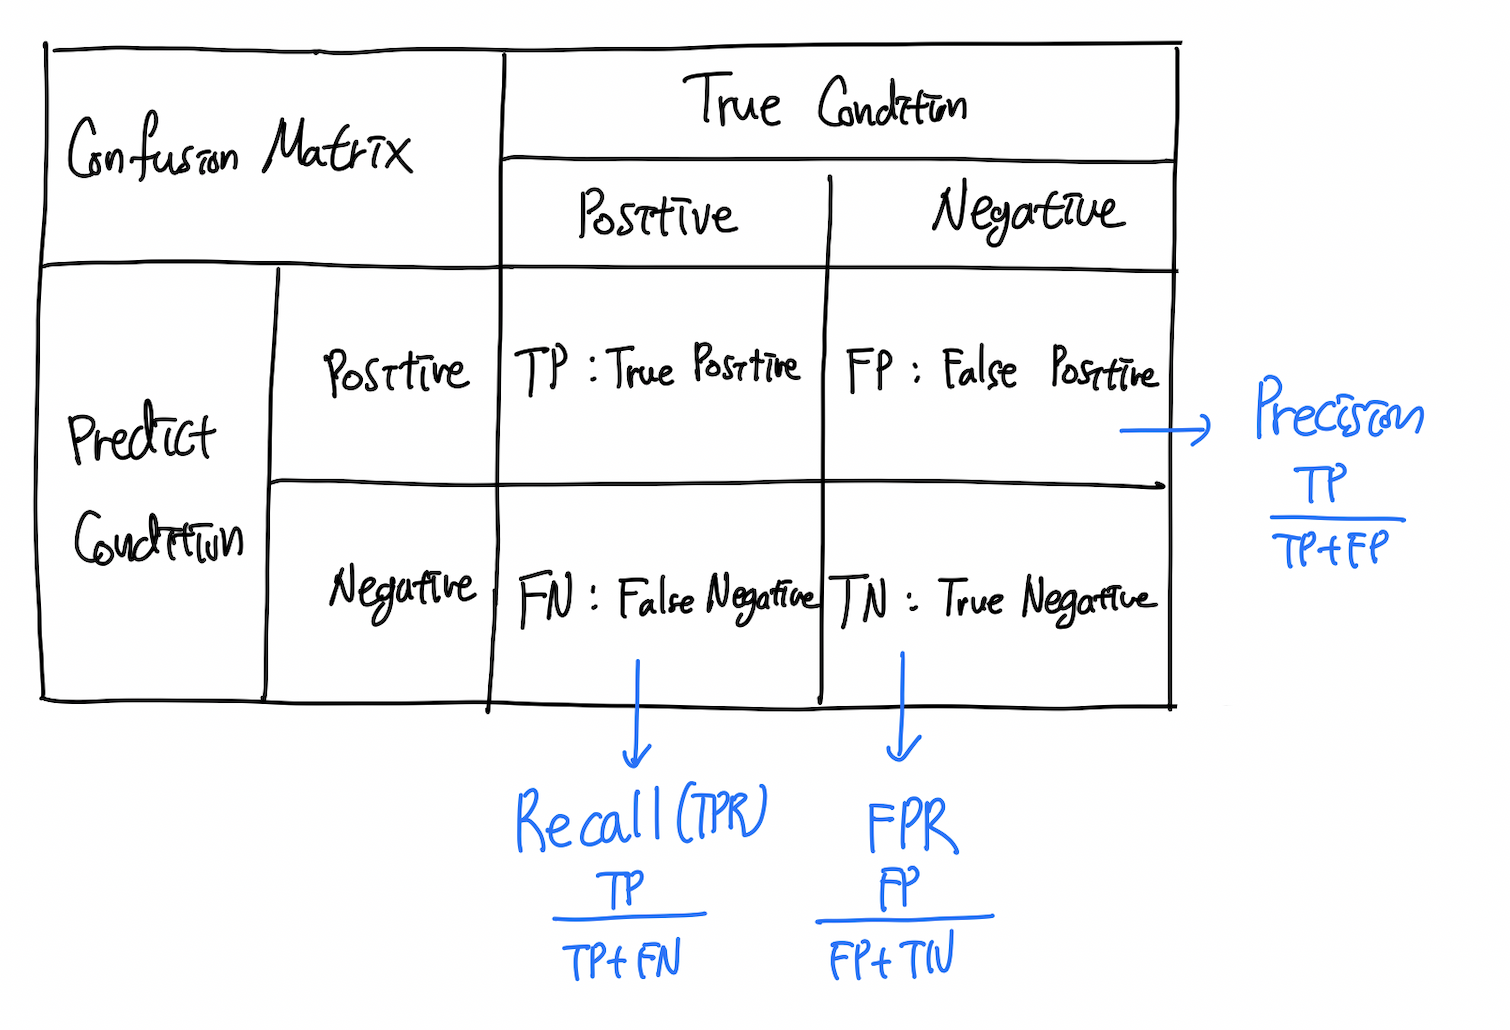 Confusion Matrix
True Condition
Positive
Negative
Predict
Condition
Positive
TP : True Positive
FP : False Positive
Negative
FN : False Negative
TN : True Negative
Precision
TP
TP+FP
Recall (TPR)
TP
TP+FN
FPR
FP
FP+TN